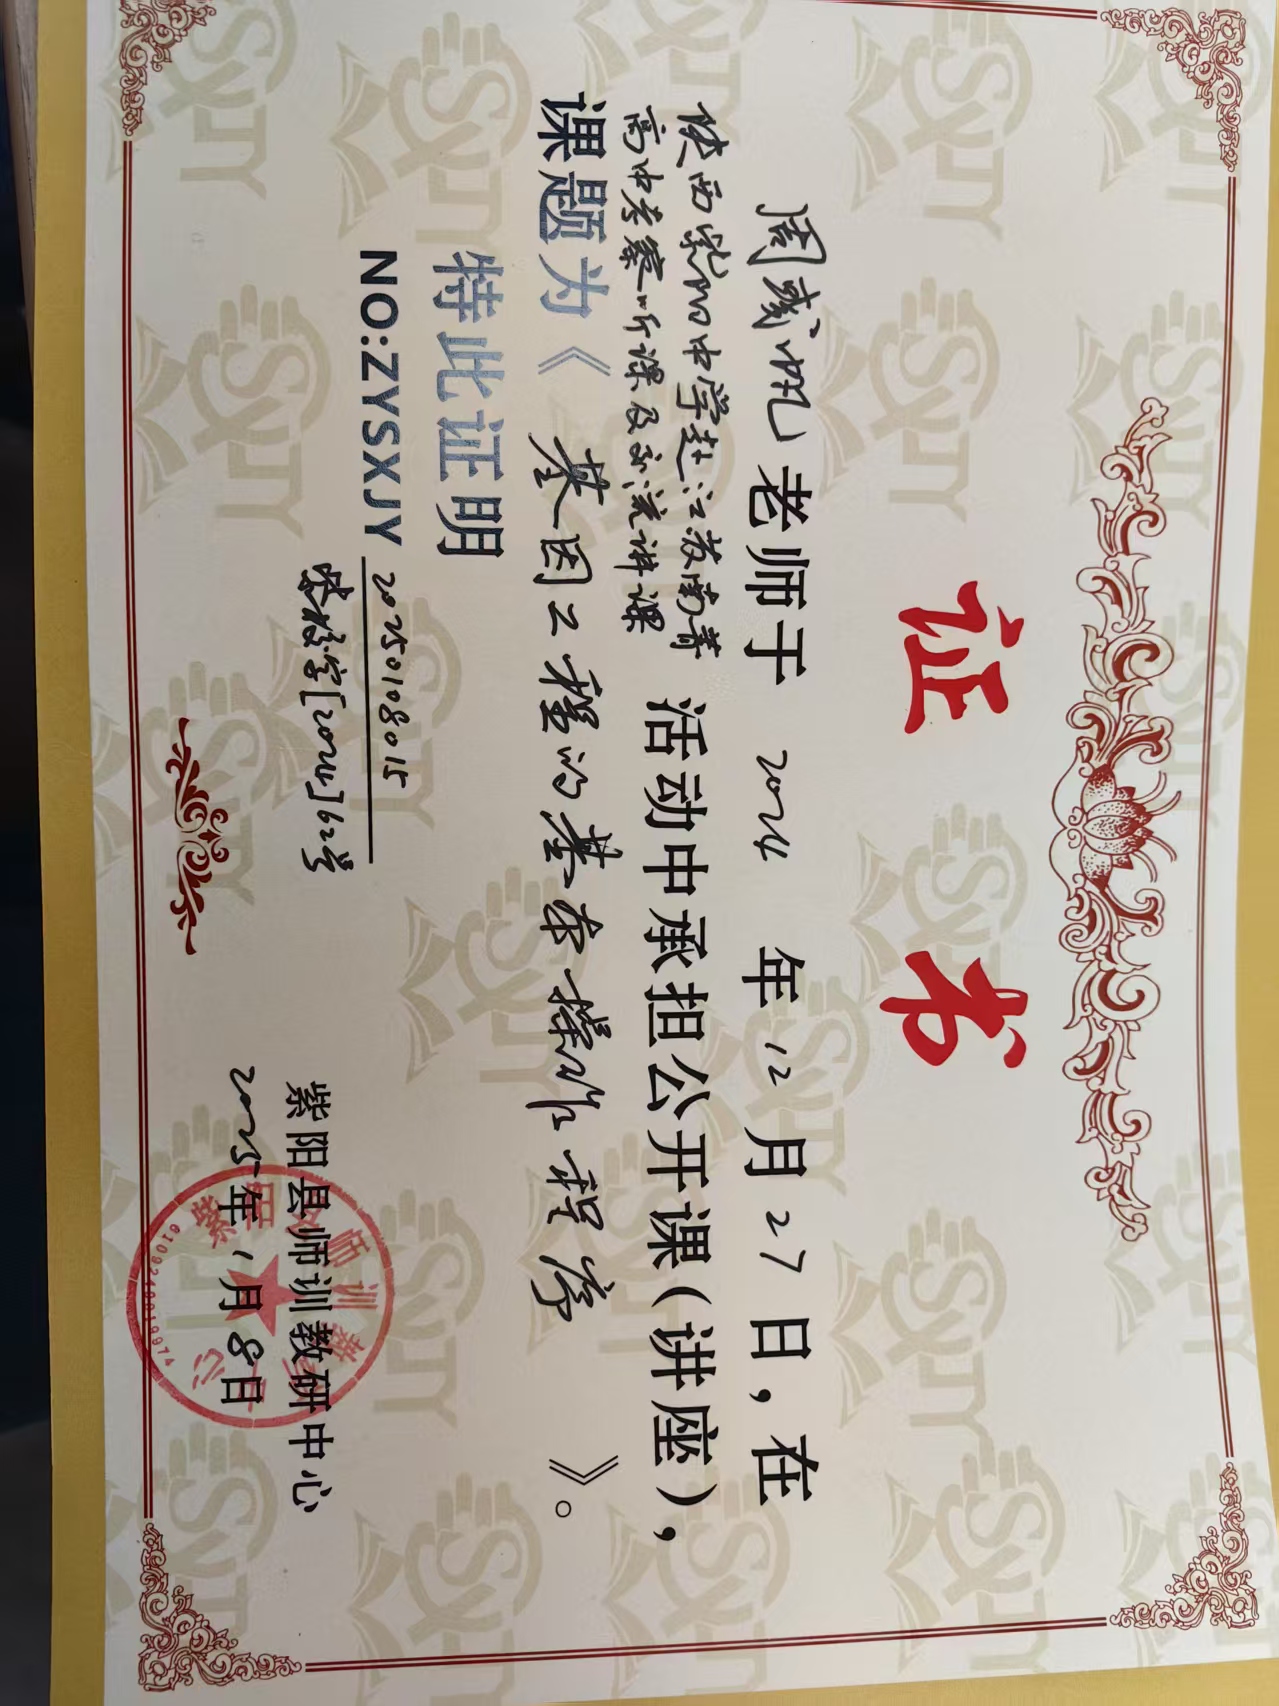 证书
周威帆老师于 2024 年 12 月 27 日，在
陕西紫阳中学赴江苏南菁
高中考察听课及交流讲课
活动中承担公开课（讲座），
课题为《 基因工程的基本操作程序 》。
特此证明
NO:ZYSXJY 20250108015
紫教室[2024]62号
紫阳县师训教研中心
2025年1月8日